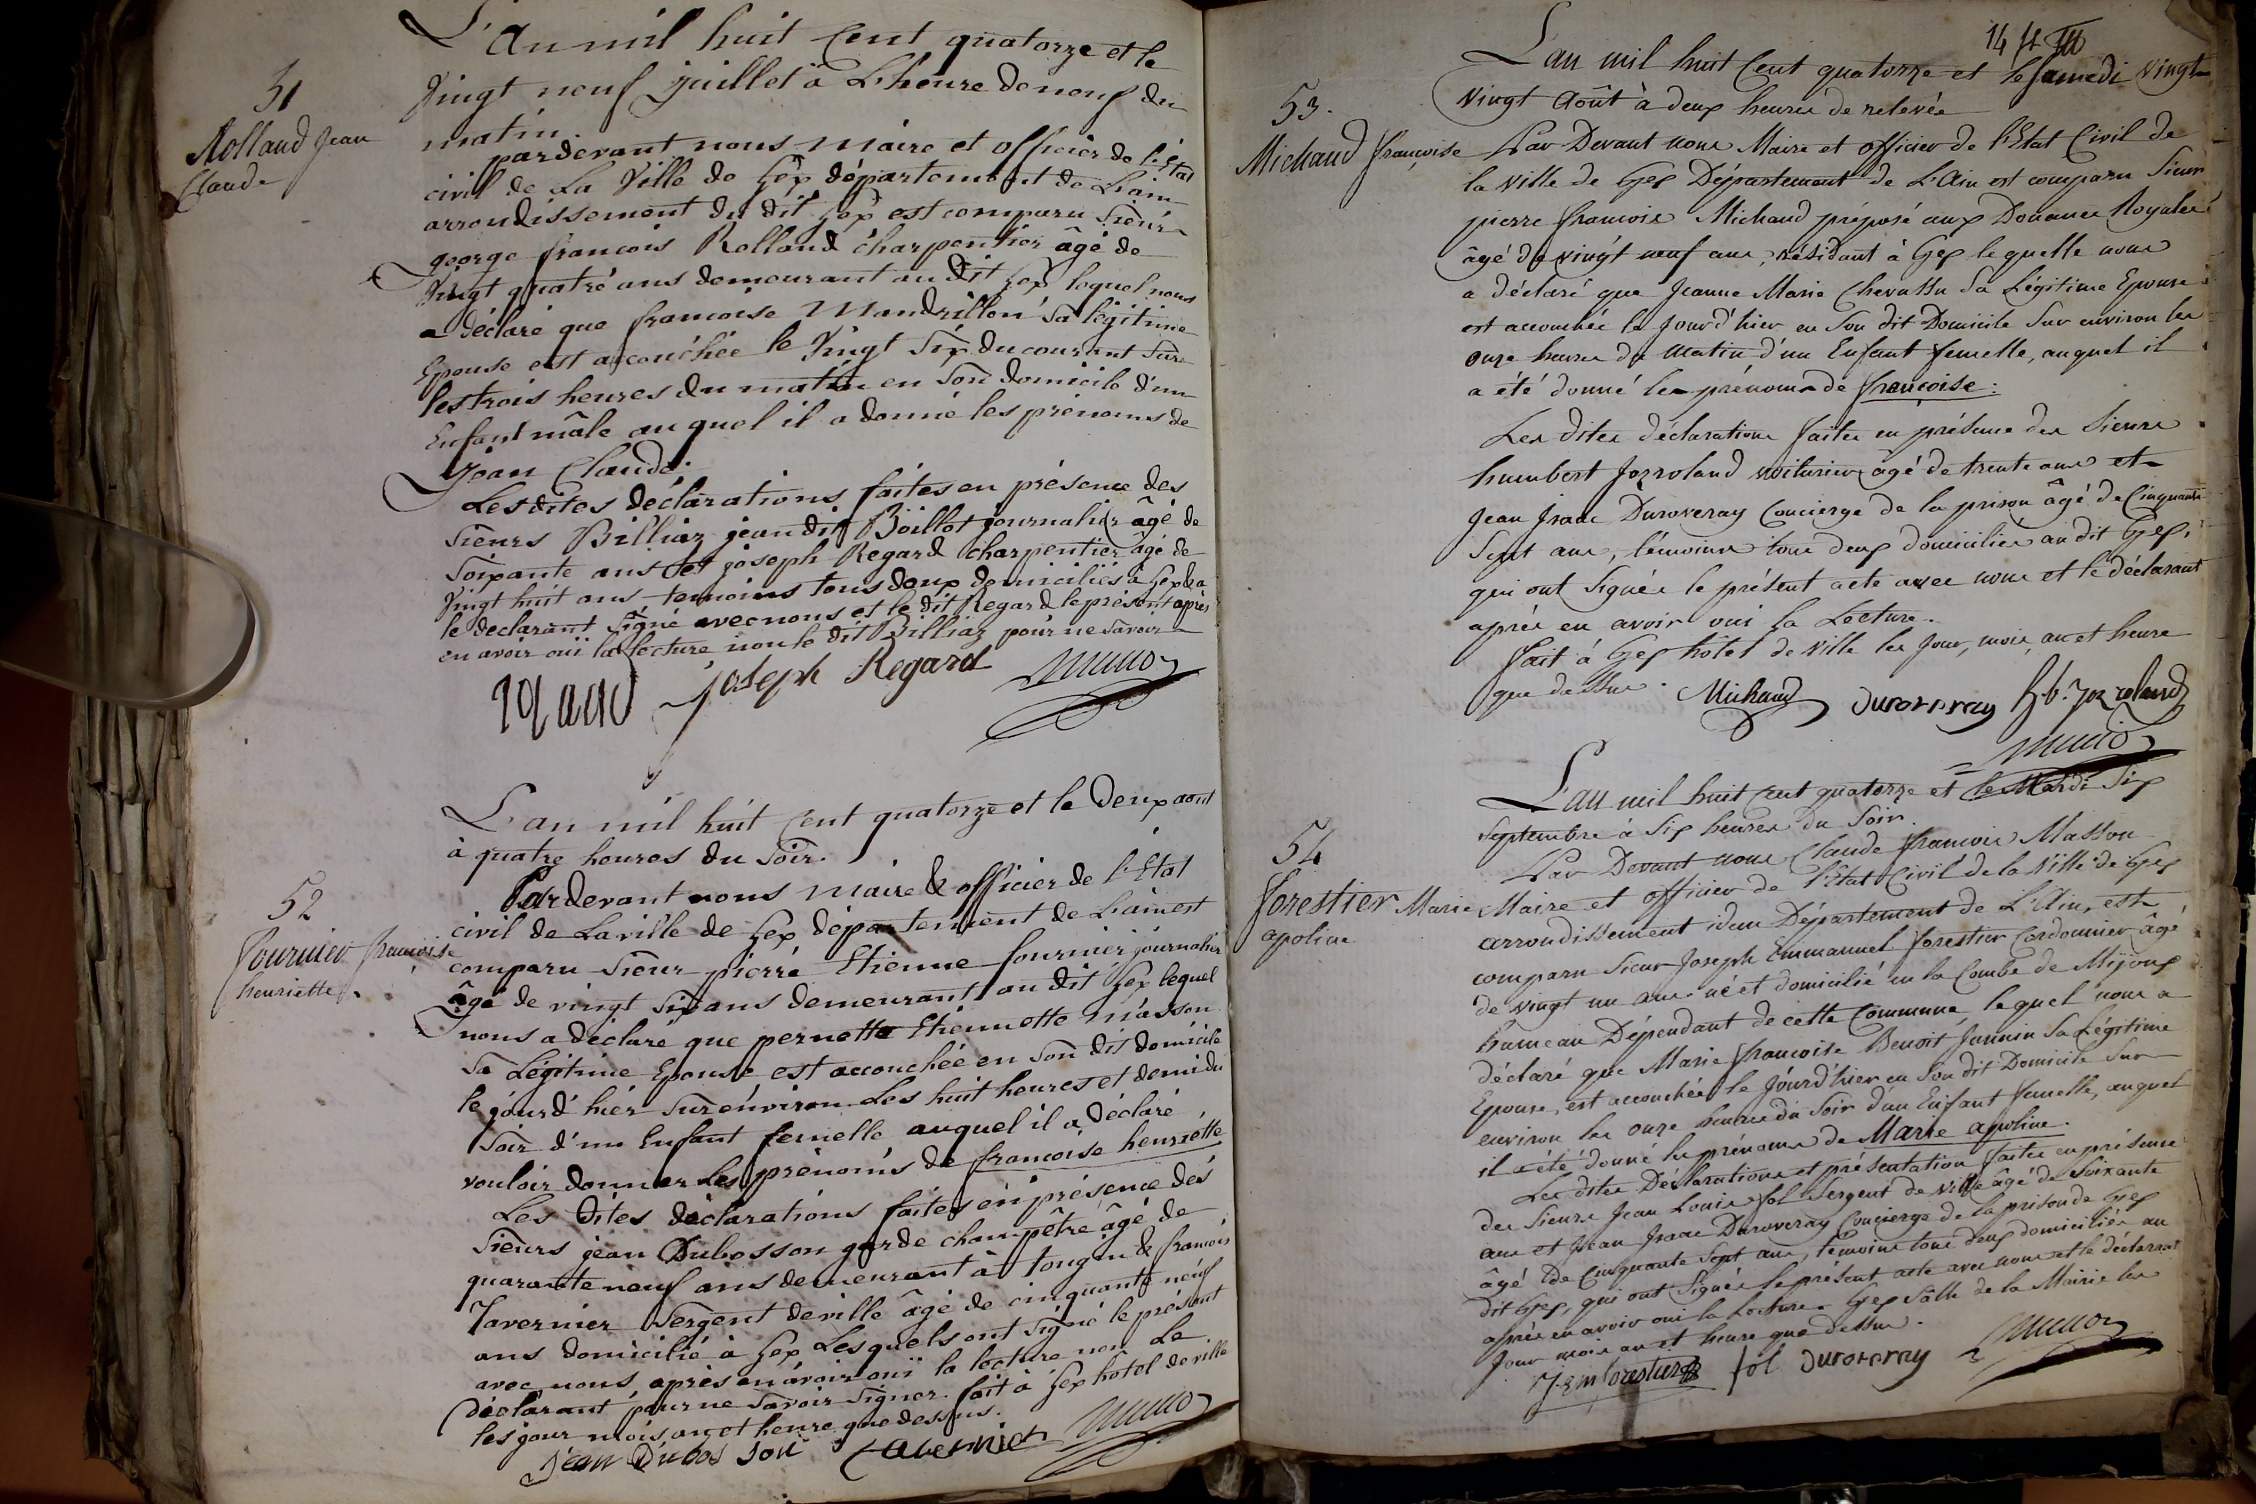 51
Rolland Jean
Claude
L'an mil huit Cent quatorze et le
Vingt neuf juillet à L'heure de neuf du
matin.
pardevant nous Maire et officier de l'Etat
civil de La Ville de Gex département de L'ain
arrondissement du dit Gex est comparu Sieur
george francois Rolland charpentier âgé de
Vingt quatre ans demeurant au dit Gex lequel nous
a déclaré que francoise Mandrillon sa légitime
Epouse est accouchée le Vingt Six du courant Sur
les trois heures du matin en Son domicile d'un
Enfant mâle auquel il a donné les prénoms de
Jean Claude.
Les dites déclarations faites en présence des
Sieurs Billiaz jean dit Boillot journalier âgé de
Soixante ans et joseph Regard charpentier âgé de
Vingt huit ans temoins tous deux domiciliés à Gex & a
le declarant Signé avec nous et le dit Regard le présent après
en avoir oui la lecture non le dit Billiaz pour ne savoir
Joseph Regard
52
Fournier francoise
henriette.
L'an mil huit Cent quatorze et le Deux aout
à quatre heures du Soir.
Pardevant nous Maire & officier de l'Etat
civil de La ville de Gex département de L'ain est
comparu Sieur pierre Etienne fournier journalier
âgé de vingt Six ans demeurant au dit Gex lequel
nous a déclaré que pernette Etiennette Masson
Sa Légitime Epouse est accouchée en Son dit domicile
le jourd'hier Sur énviron Les huit heures et demi du
Soir d'un Enfant femelle auquel il a déclaré
vouloir donner Les prénoms de francoise henriette
Les dites déclarations faites en présence des
Sieurs jean Dubosson garde champêtre âgé de
quarante neuf ans demeurant à Tougin & francois
Tavernier Sergent de ville âgé de cinquante neuf
ans domicilié à Gex Lesquels ont signé le présent
avec nous, après en avoir oui la lecture non Le
déclarant pour ne Savoir Signer. fait à Gex hôtel de ville
les jour mois an et heure que dessus.
jean Dubos son Tavernier
14
53.
Michaud françoise
L'an mil huit Cent quatorze et le Samedi vingt
Vingt Août à deux heures de relevée
Par Devant nous Maire et officier de l'Etat Civil de
la Ville de Gex Département de L'Ain est comparu Sieur
pierre francois Michaud préposé aux Douanes Royales
âgé de vingt neuf ans, résidant à Gex lequelle nous
a déclaré que Jeanne Marie Chevassu Sa Légitime Epouse
est accouchée le Jourd'hier en Son dit Domicile Sur environ les
onze heures du Matin d'un Enfant femelle, auquel il
a été donné les prénoms de françoise:
Les dites déclarations faites en présence des Sieurs
humbert Jozroland voiturier âgé de trente ans et
Jean Isaac Duroveray Concierge de la prison âgé de Cinquante
Sept ans, témoins tous deux domiciliés au dit Gex,
qui ont Signés le présent acte avec nous et le déclarant
après en avoir oui la Lecture.
fait à Gex hôtel de ville les Jour, mois, an et heure
que dessus. Michaud Duroveray hb. Joz roland
54
forestier Marie
apoline
L'an mil huit cent quatorze et le Mardi Six
Septembre à Six heures du Soir.
Par Devant nous Claude francois Masson
Maire et officier de l'Etat Civil de la Ville de Gex
arrondissement idem Département de L'Ain, est
comparu Sieur Joseph Emmanuel forestier Cordonnier âgé
de vingt un ans né et domicilié en la Combe de Mijoux
hameau Dépendant de cette Commune, lequel nous a
déclaré que Marie françoise Benoit Jannin Sa Légitime
Epouse, est accouchée le Jourd'hier en Son dit Domicile Sur
environ les onze heures du Soir d'un Enfant femelle, auquel
il a été donné les prénoms de Marie apoline.
Les dites Déclarations et présentation faites en présence
des Sieurs Jean Louis fol Sergent de ville âgé de Soixante
ans et Jean Isaac Duroveray Concierge de la prison de Gex
âgé de Cinquante Sept ans, témoins tous deux domiciliés au
dit Gex, qui ont Signés le présent acte avec nous et le déclarant
après en avoir oui la Lecture. Gex Salle de la Mairie les
Jour mois an et heure que dessus.
J. Em forestier fol Duroveray